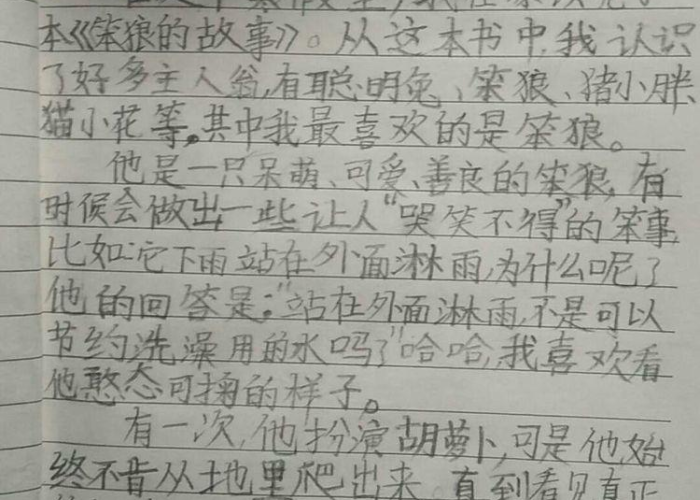 本《笨狼的故事》。从这本书中,我认识
了好多主人翁,有聪明兔、笨狼、猪小胖、
猫小花等。其中我最喜欢的是笨狼。
他是一只呆萌、可爱、善良的笨狼,有
时候会做出一些让人“哭笑不得”的笨事,
比如:它下雨站在外面淋雨,为什么呢了
他的回答是:“站在外面淋雨,不是可以
节约洗澡用的水吗了”哈哈,我喜欢看
他憨态可掬的样子。
有一次,他扮演胡萝卜,可是他始
终不肯从地里爬出来。直到看见真正